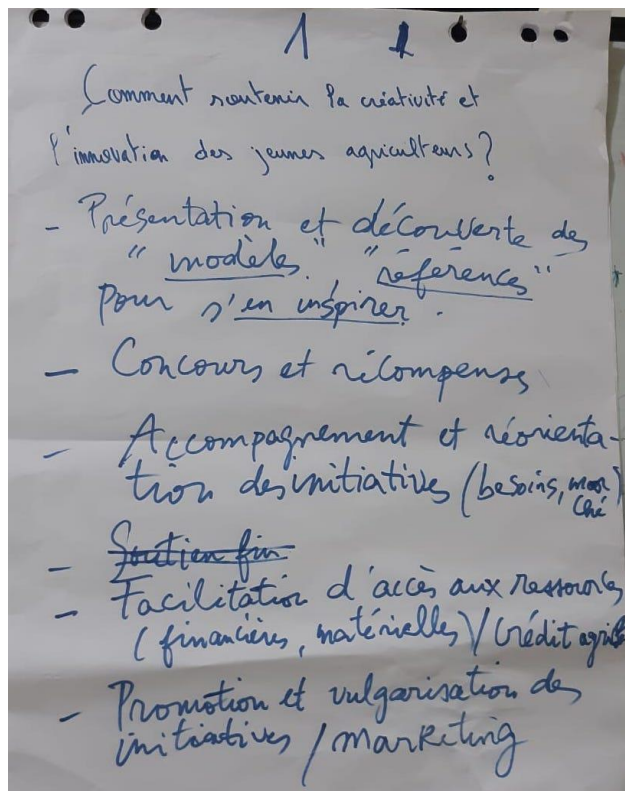 1 1
Comment soutenir la créativité et
l'innovation des jeunes agriculteurs?
- Présentation et découverte des
"modèles" "références"
pour s'en inspirer.
- Concours et récompenses
- Accompagnement et réorienta-
tion des initiatives (besoins, mar
ché)
- Soutien fin
- Facilitation d'accès aux ressources
(financières, matérielles) / Crédit
- Promotion et vulgarisation des
initiatives / marketing